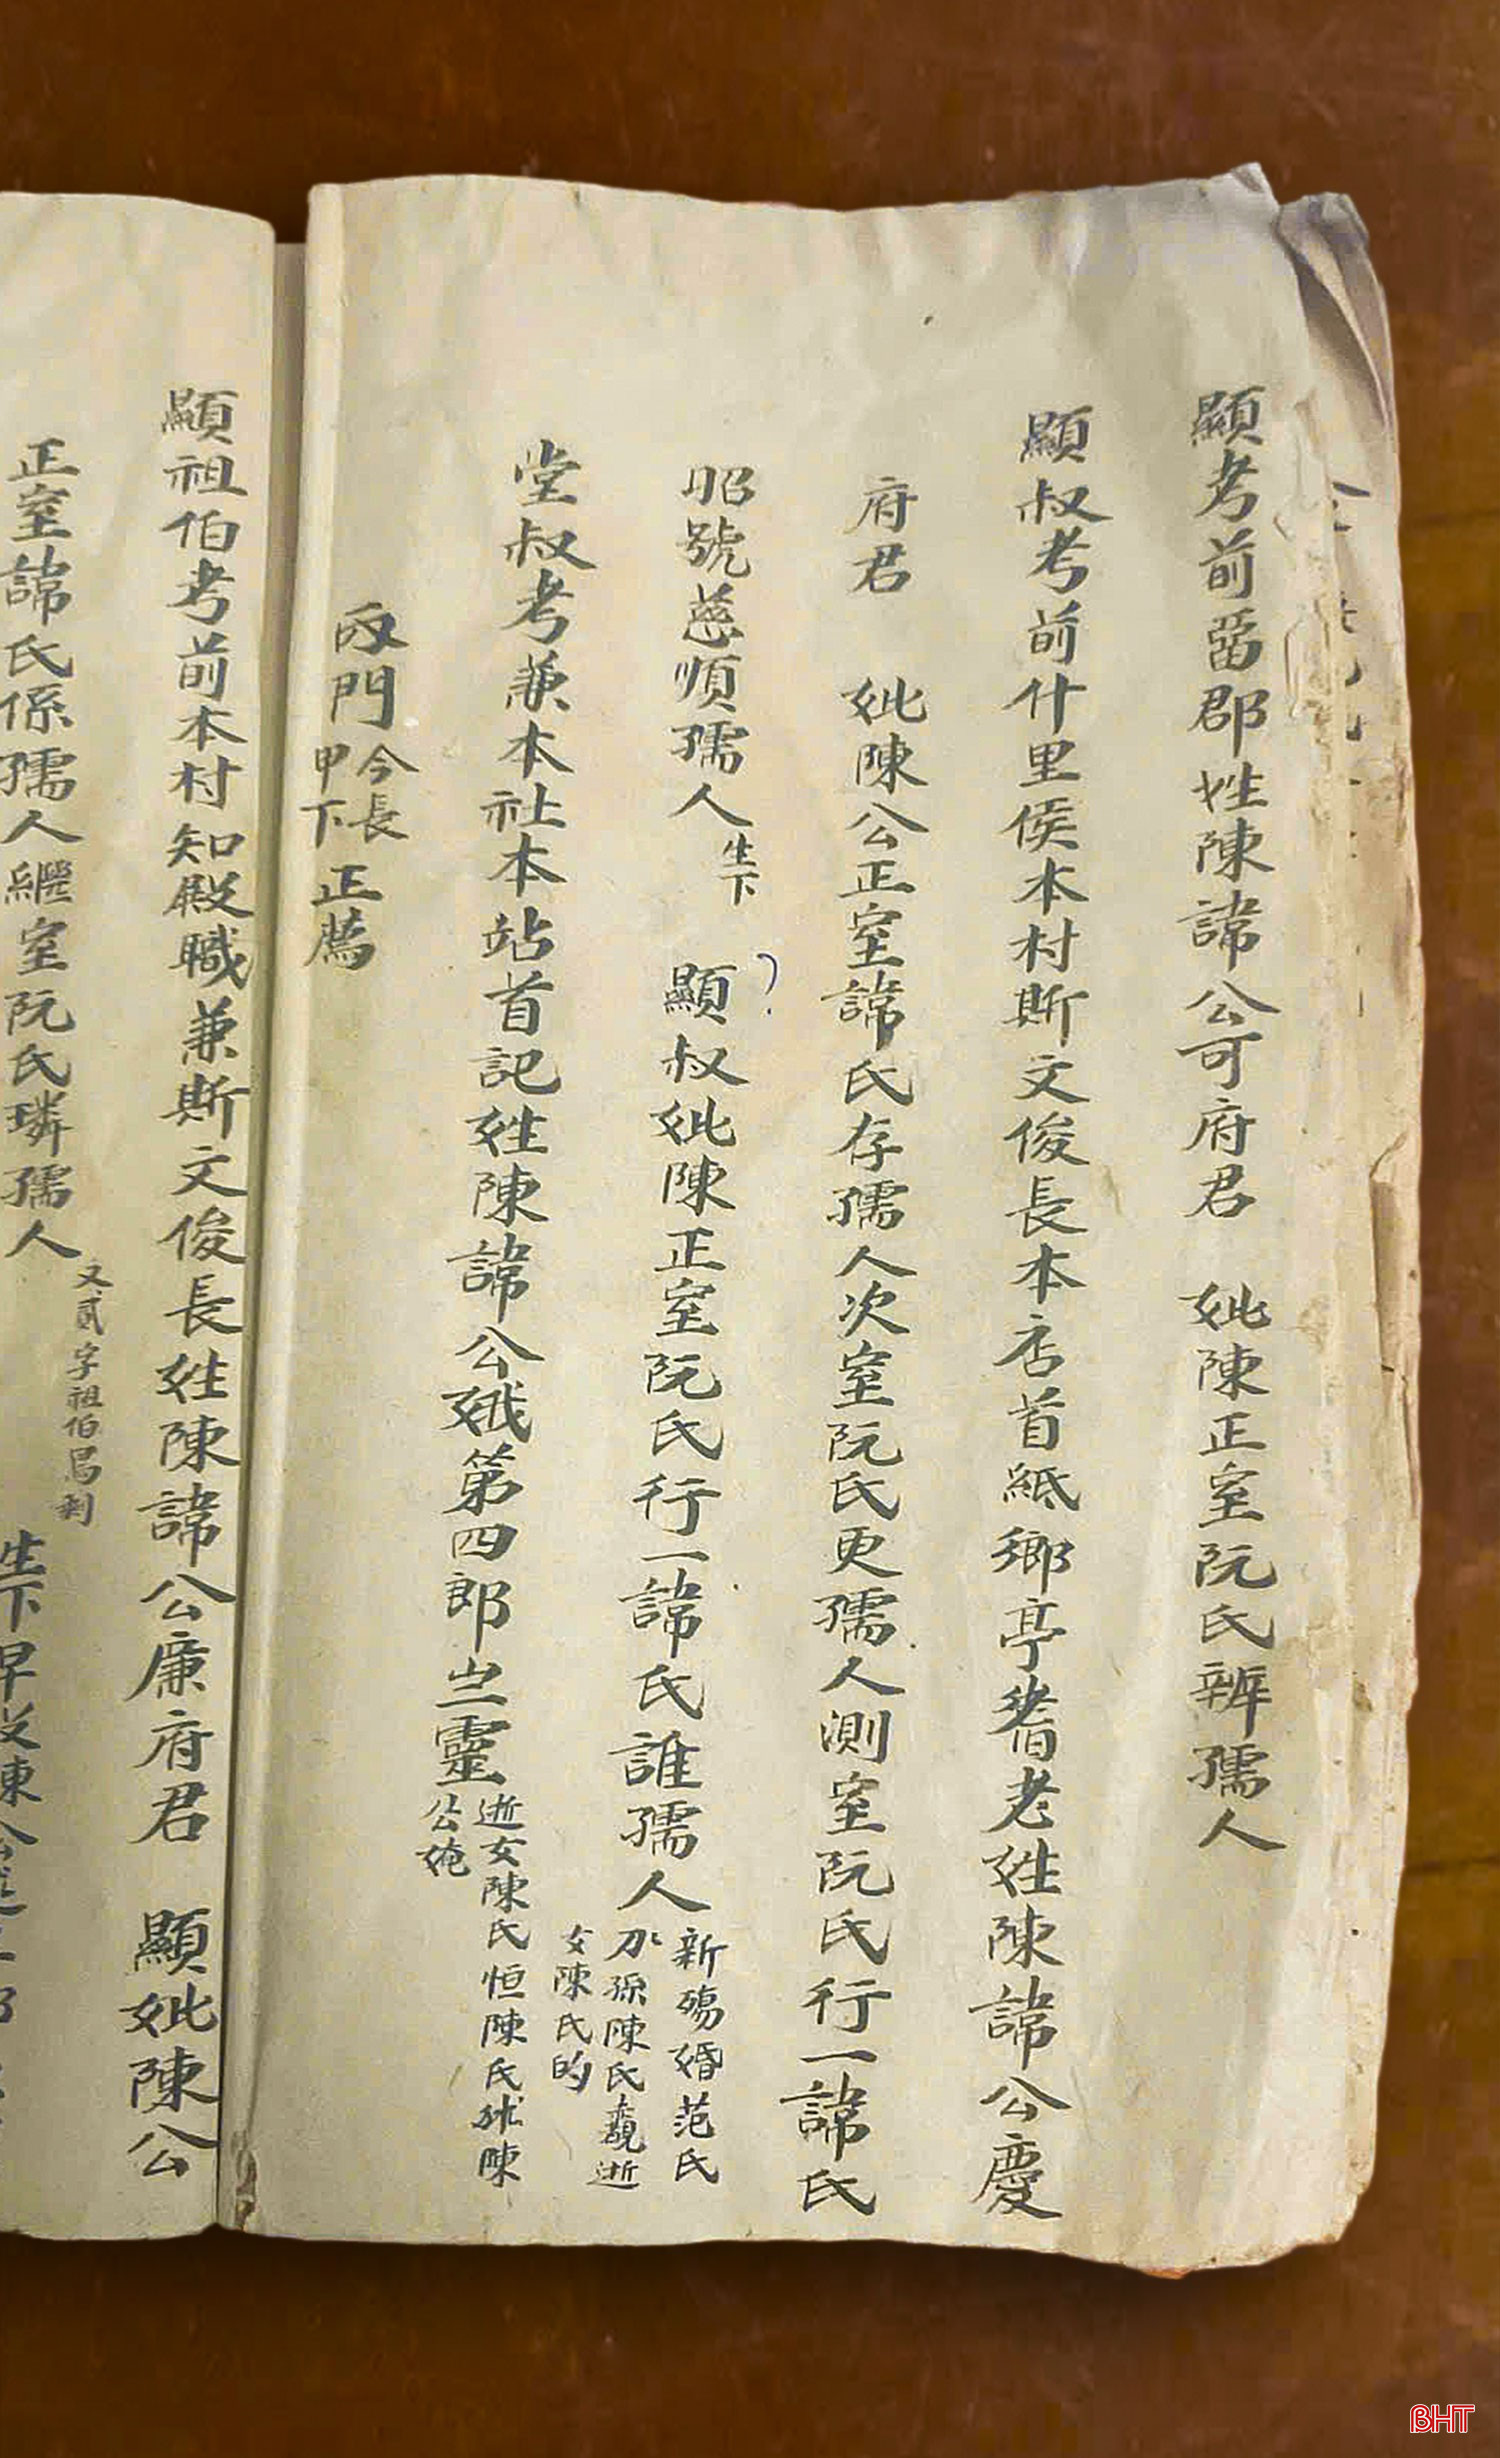 顯考前畱郡姓陳諱公可府君 妣陳正室阮氏辨孺人
顯叔考前什里侯本村斯文俊長本店首紙鄉亭耆老姓陳諱公慶
府君 妣陳公正室諱氏存孺人次室阮氏更孺人測室阮氏行一諱氏
昭號慈順孺人 生下 顯叔妣陳正室阮氏行一諱氏誰孺人
新殤婚范氏
孫陳氏覩逝
女陳氏的
堂叔考兼本社本站首記姓陳諱公娥第四郎之靈
逝女陳氏恒陳氏 陳
公婄
門 今長 甲下 正薦
顯祖伯考前本村知殿職兼斯文俊長姓陳諱公廉府君 顯妣陳公
正室諱氏係孺人繼室阮氏璘孺人
又貳字祖伯爲
生下早 陳公
BHT